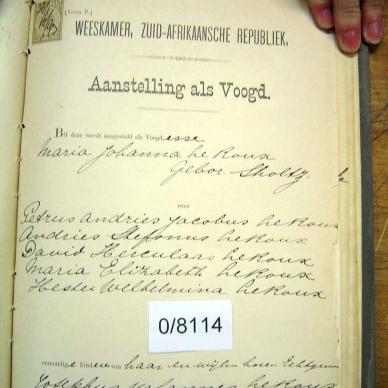 (Vorm B.)
WEESKAMER, ZUID-AFRIKAANSCHE REPUBLIEK.
Aanstelling als Voogd.
Bij deze wordt aangesteld als Voogdesse
Maria Johanna le Roux
Gebor Sholtz
over
Petrus Andries Jacobus le Roux
Andries Stefonus le Roux
David Herculaas le Roux
Maria Elizabeth le Roux
Hester Wilhelmina le Roux
0/8114
onmondige kinderen van haar en wijlen haren Echtgenoot
Johannes le Roux